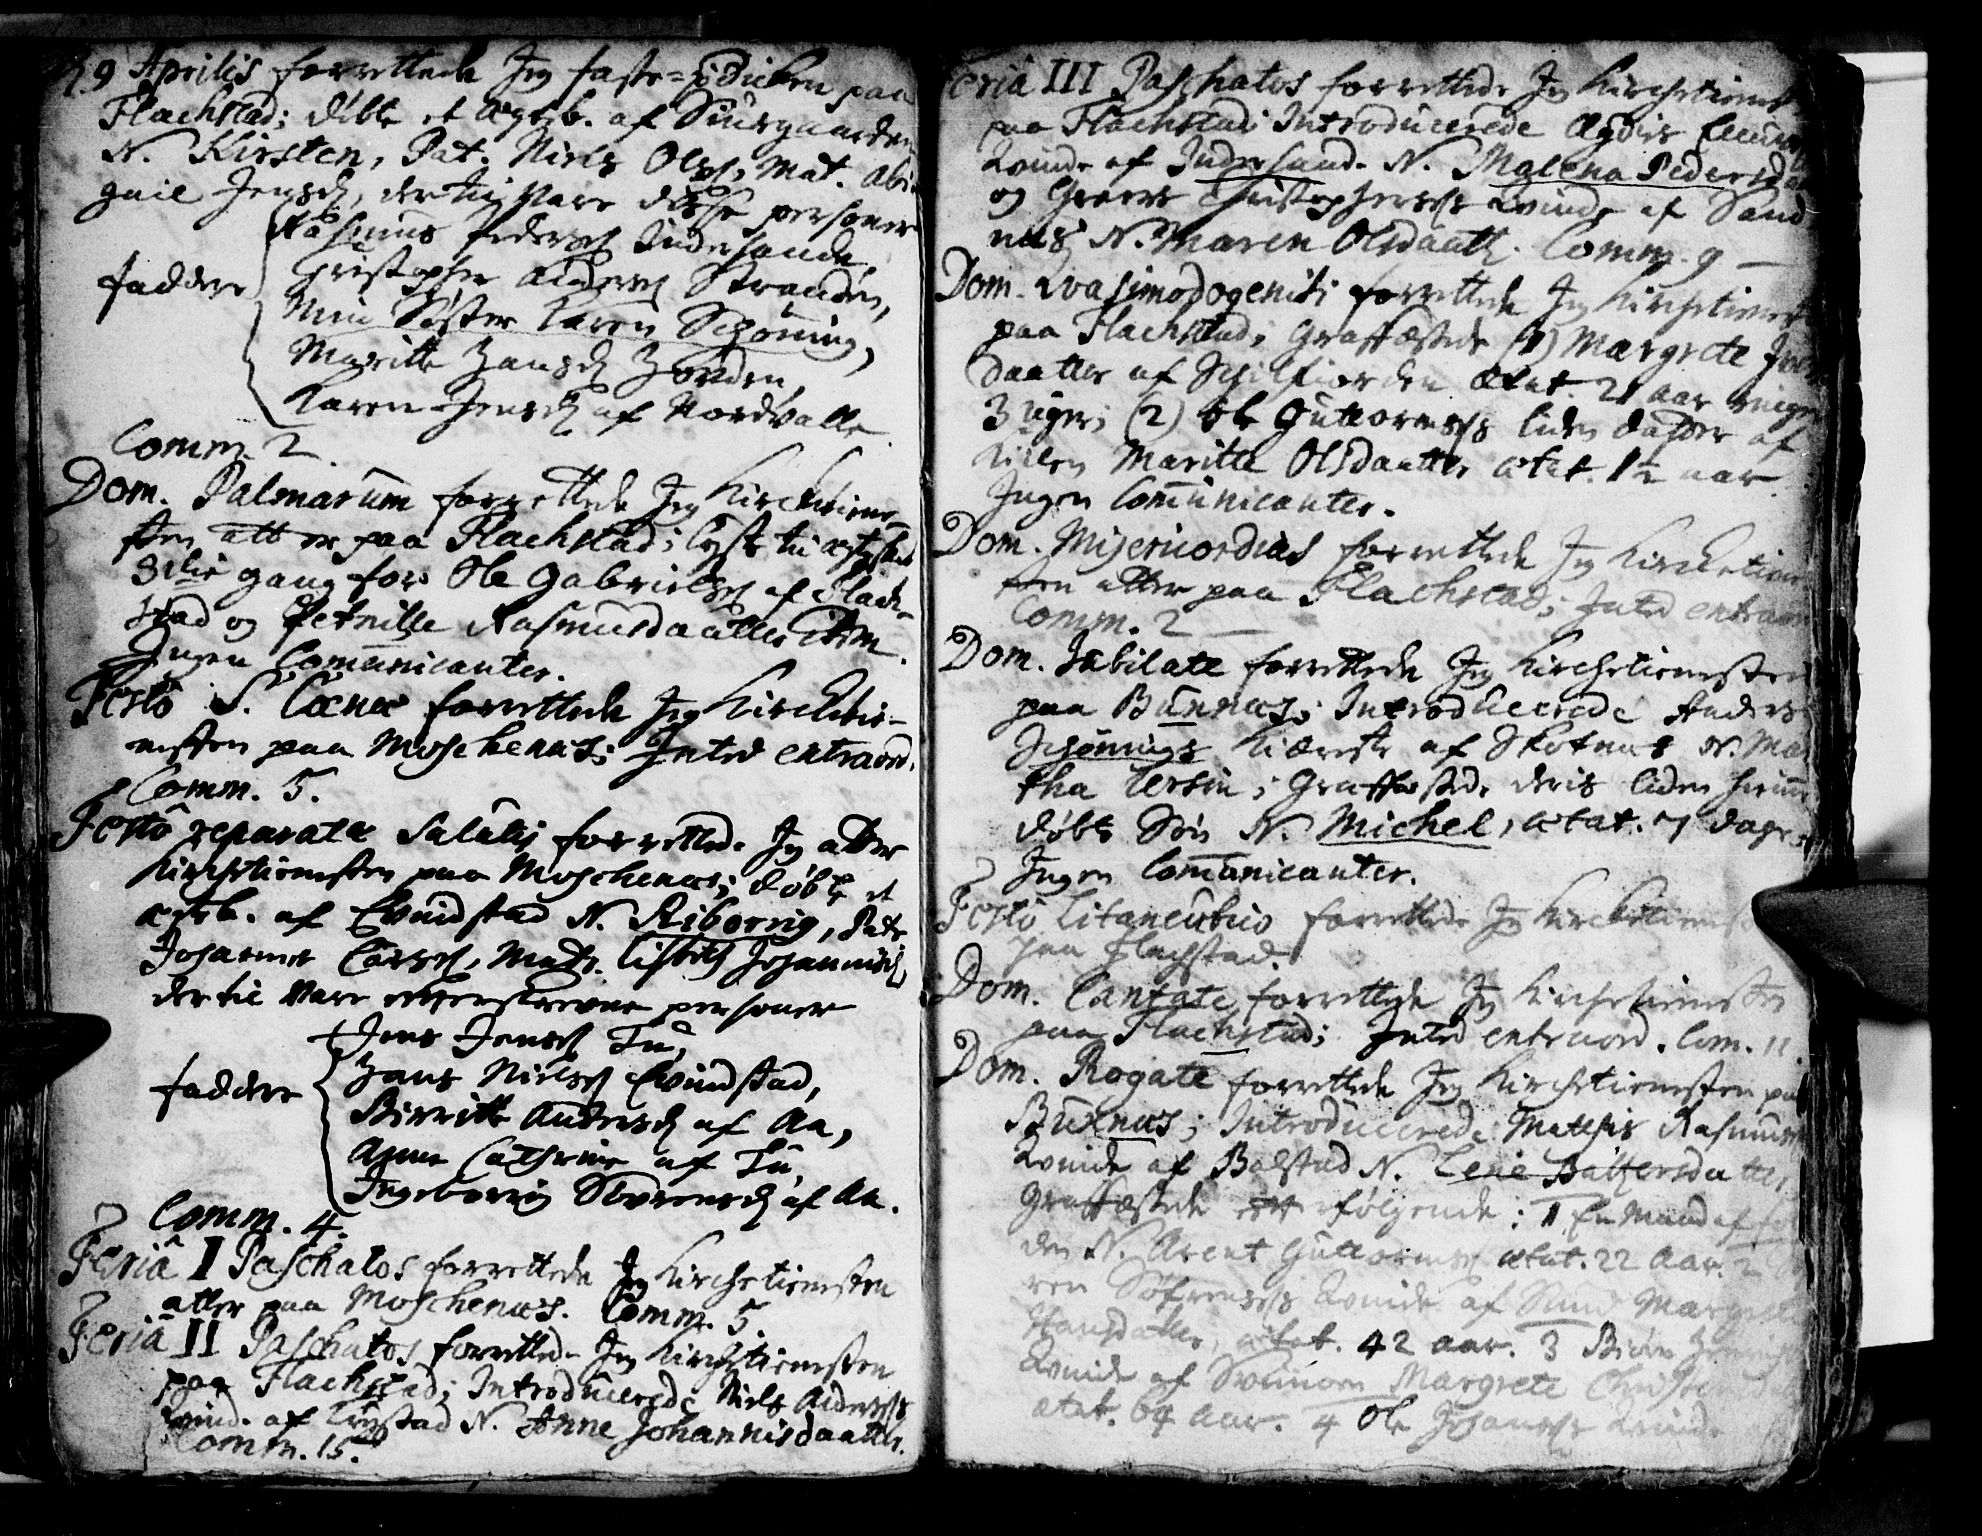 9 Aprilis forrettede Jeg faste-prædicken paa
Flachstad; døbte et ægteb. af Siusgaarden
N. Kirsten, Pat. Niels Ols, Mat. Abi-
gail Jensd, dertil vare disse personer
Rasmus Peders Indersande,
Christopher Anders Stranden,
faddere
Min Søster Karen Schøning,
Maritte Hansd
Karen Jensd af Nordvalle
Comm. 2.
Dom. Palmarum forrettede Jeg Kirchetiene-
sten atter paa Flachstad; lyste til ægteskab
3die gang for Ole Gabriels af Flach-
stad og Petnille Rasmusdaatter ibm.
Ingen Communicanter.
Festo S. Coenæ forrettede Jeg Kirchetie-
nesten paa Moschenæs; Inted extraord.
Comm. 5.
Festo reparatæ Salutis forrettede Jeg atter
Kirchetienesten paa Moschenæs; døbte et
ægteb. af Evindstad N. Riborrig, Pat.
Johannes Lars, Mat. Lisbeth Johannisd,
dertil vare efterskrevne personer
Jens Jens Tu,
Hans Niels Evindstad,
faddere
Birritte Andersd af Aa,
Anne Cathrine af Tu,
Ingeborrig Sørensd af Aa.
Comm. 4.
Feria I Paschatos forrettede Jeg Kirchetienesten
atter paa Moschenæs. Comm. 5.
Feria II Paschatos forrettede Jeg Kirchetienesten
paa Flachstad; Introducerede Niels Anders
Qvinde af N. Anne Johannisdaatter.
Comm. 15.
Feria III Paschatos forrettede Jeg Kirchetienest
paa Flachstad; Introducerede
Qvinde af Indersand. N. Malena Pedersd
og Christophers Qvinde af Sand
næs N. Maren Olsdaatt. Comm. 9
Dom. Qvasimodogeniti forrettede Jeg Kirchetienest
paa Flachstad; Graffæstede (1) Margrete
Daatter af ætat. 21 aar
3 uger; (2) Ole Guttorms liden datter af
Maritte Olsdaatter ætat. 1½ aar
Ingen Communicanter.
Dom. Misericordias forrettede Jeg Kirchetiene
sten atter paa Flachstad; Inted extraord
Comm. 2
Dom. Jubilate forrettede Jeg Kirchetienesten
paa Buxnæs; Introducerede Anders
Schønings Kiæreste af Skotnæs N. Mar
tha Tersin; Graffæstede deris liden hiemme
døbte Søn N. Michel, ætat. 7 dage
Ingen Communicanter.
Festo Litaneutico forrettede Jeg Kirchetienest
paa Flachstad.
Dom. Cantate forrettede Jeg Kirchetienesten
paa Flachstad; Inted extraord. Com. 11.
Dom. Rogate forrettede Jeg Kirchetienesten paa
Buxnæs; Introducerede Mathis Rasmus
Qvinde af Balstad N. Lene Baltzersdatter
Graffæstede efterfølgende: 1 En Mand af
den N. Arent Guttorms ætat. 22 Aar. 2
ren Søfrens Qvinde af Sund Margrete
Hansdatter, ætat. 42 aar. 3
Qvinde af Svinøen Margrete
ætat. 64 Aar. 4 Ole Johans Qvinde